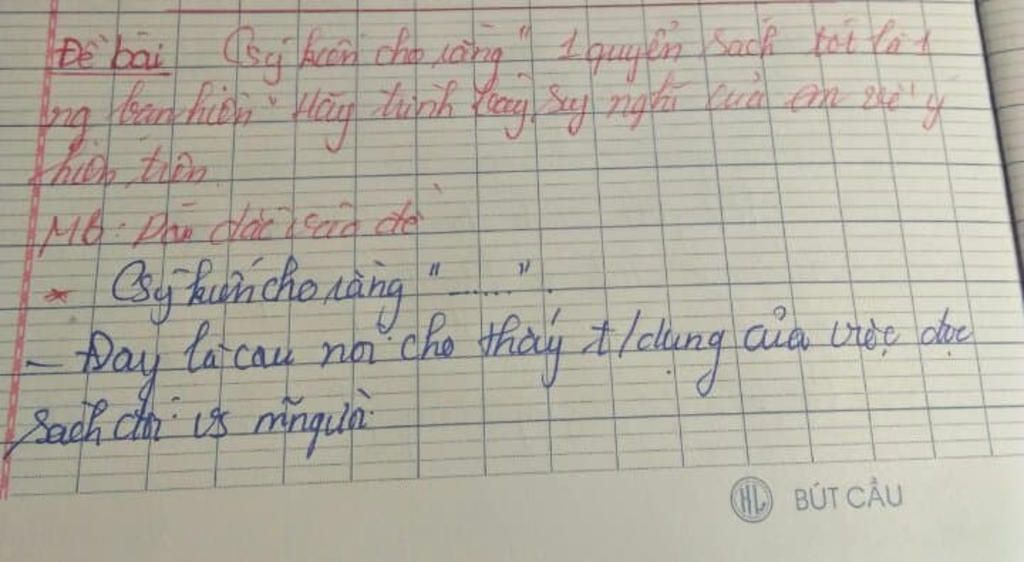 Đề bài Có ý kiến cho rằng " 1 quyển sách tốt là 1
ng bạn hiền" Hãy trình bày suy nghĩ của em về ý
kiến trên
MB: Dẫn dắt vấn đề
* Có ý kiến cho rằng "......".
- Đay là cau nói cho thấy t/dụng của việc đọc
sách đối vs mngười
HL BÚT CẦU